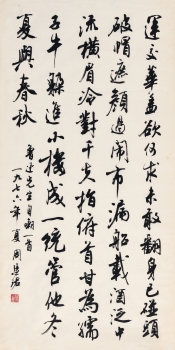 運交華蓋欲何求未敢翻身已碰頭
破帽遮顏過鬧市漏船載酒泛中
流橫眉冷對千夫指俯首甘為孺
子牛躲進小樓成一統管他冬
夏與春秋
魯迅先生自嘲一首
一九七六年夏周慧珺